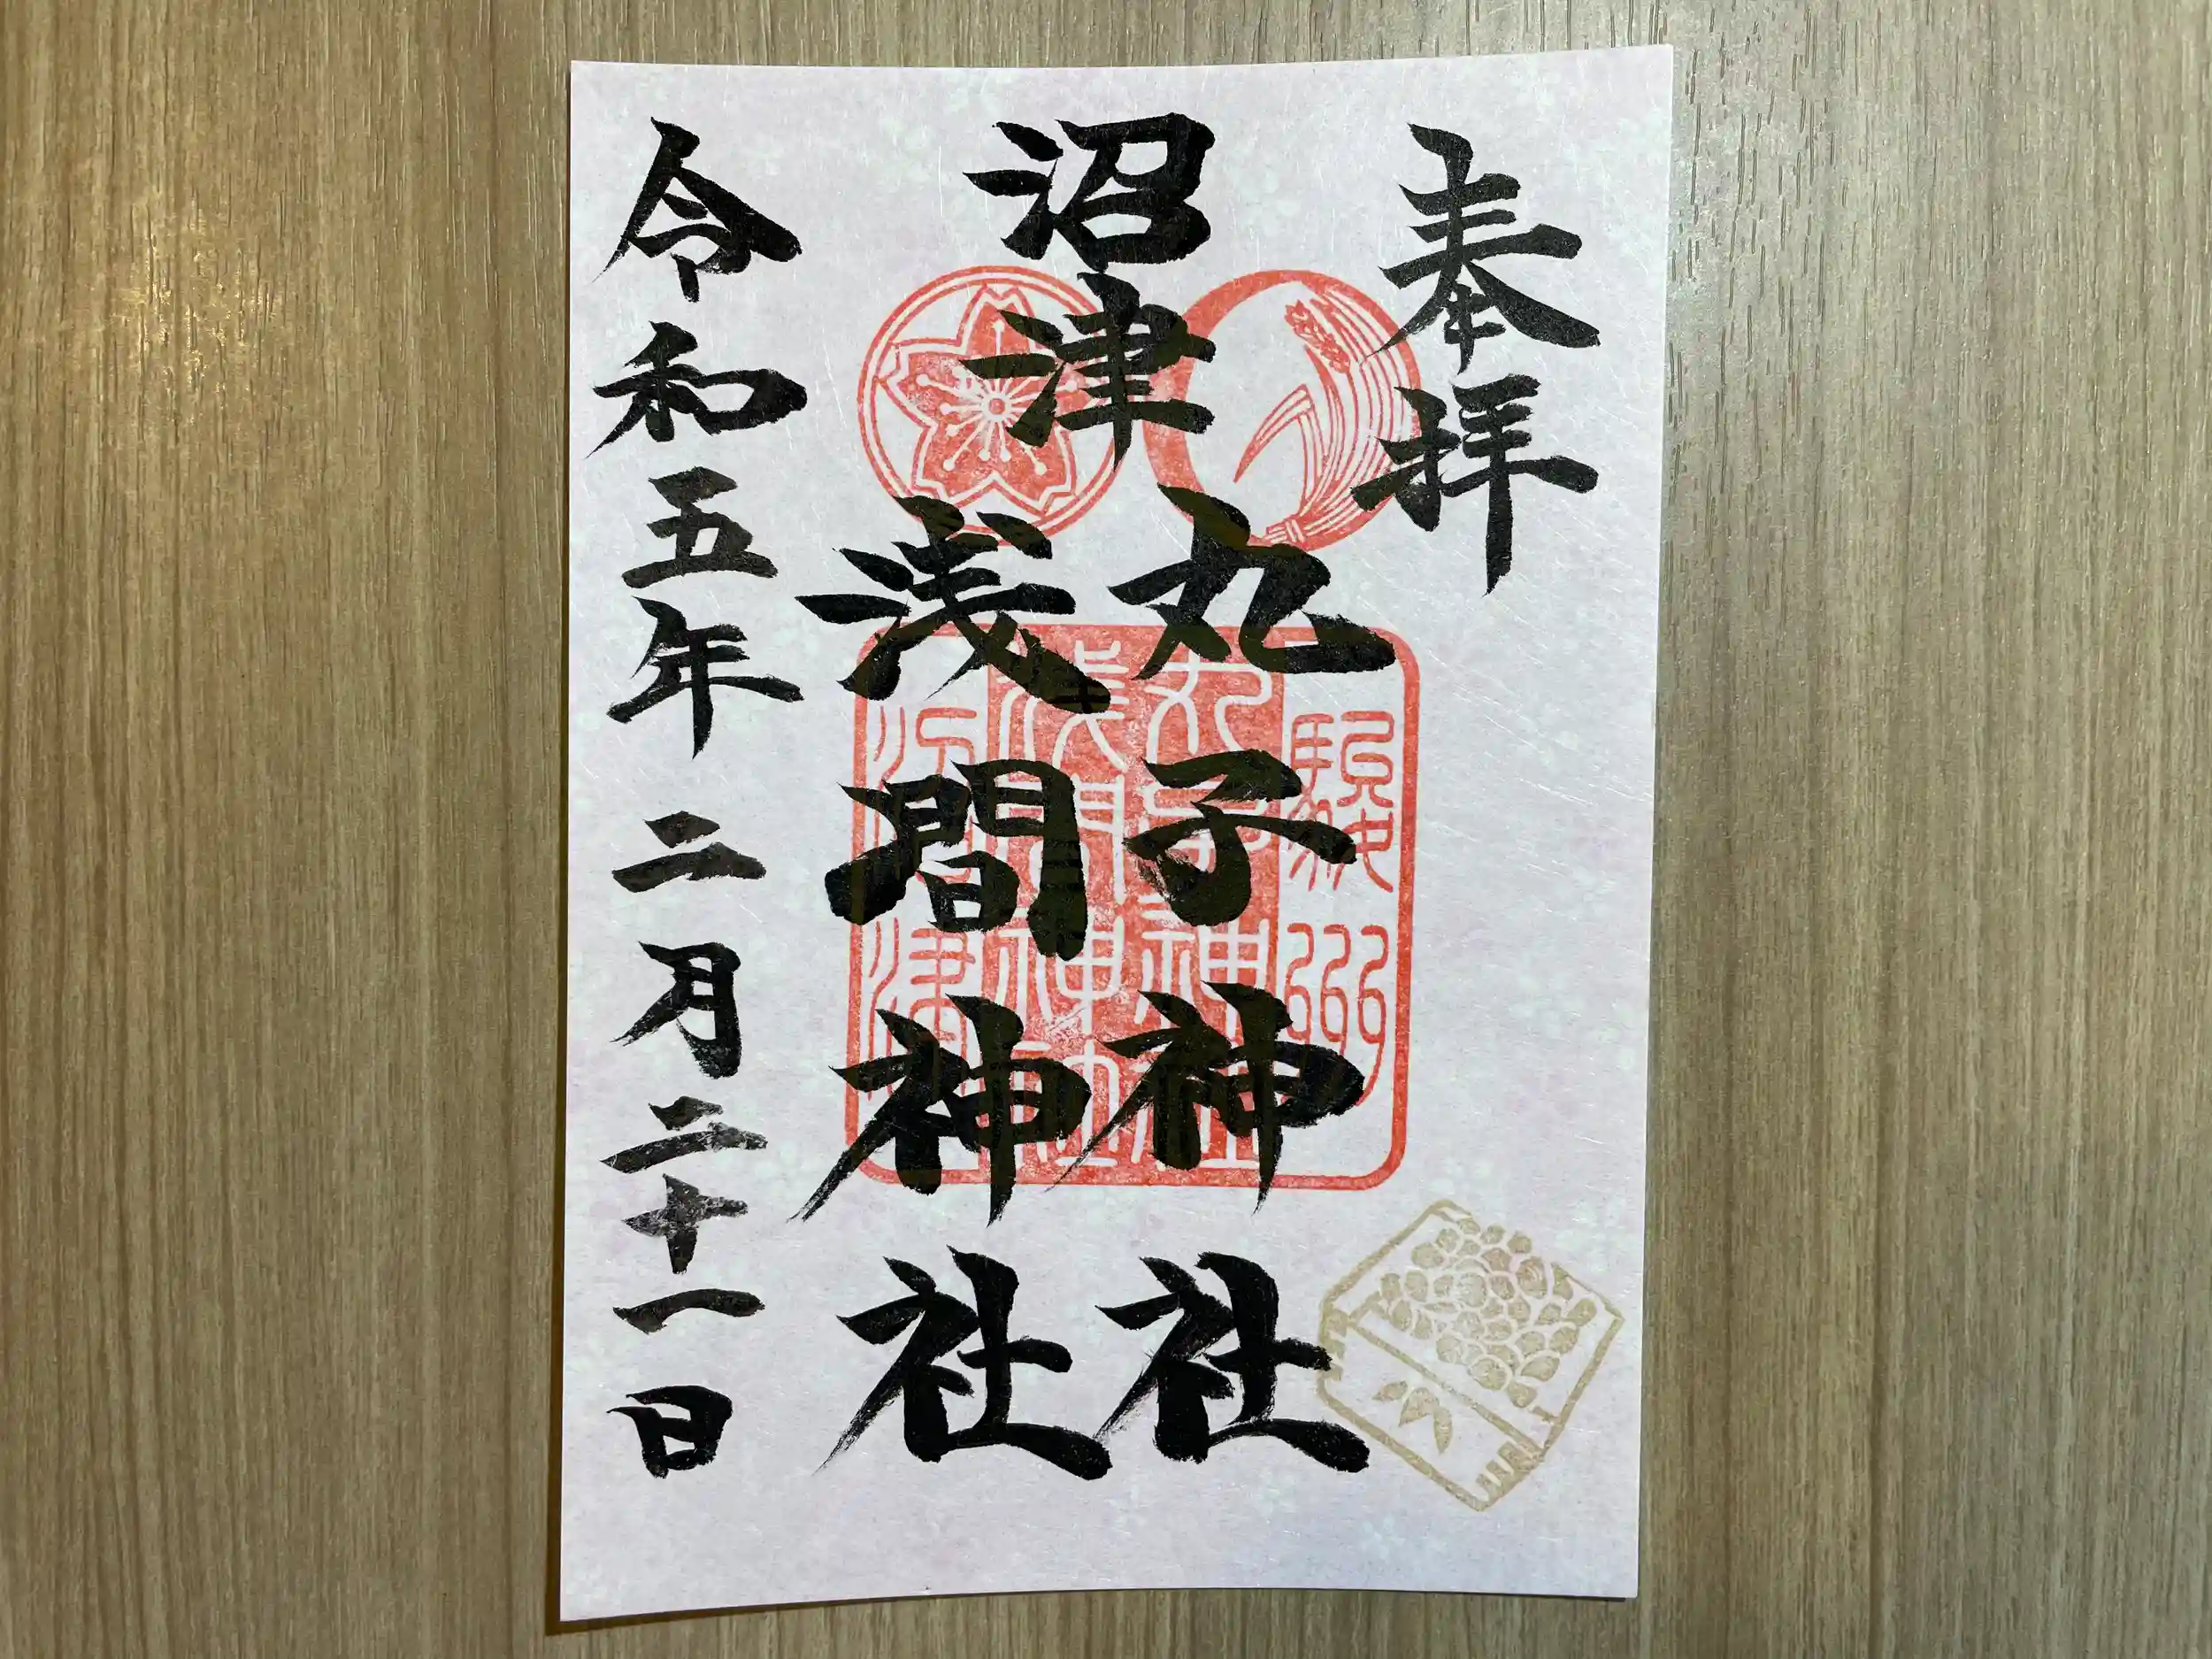 奉拝
沼津
丸子神社
浅間神社
令和五年二月二十一日
駿州
丸子神社
浅間神社
沼津